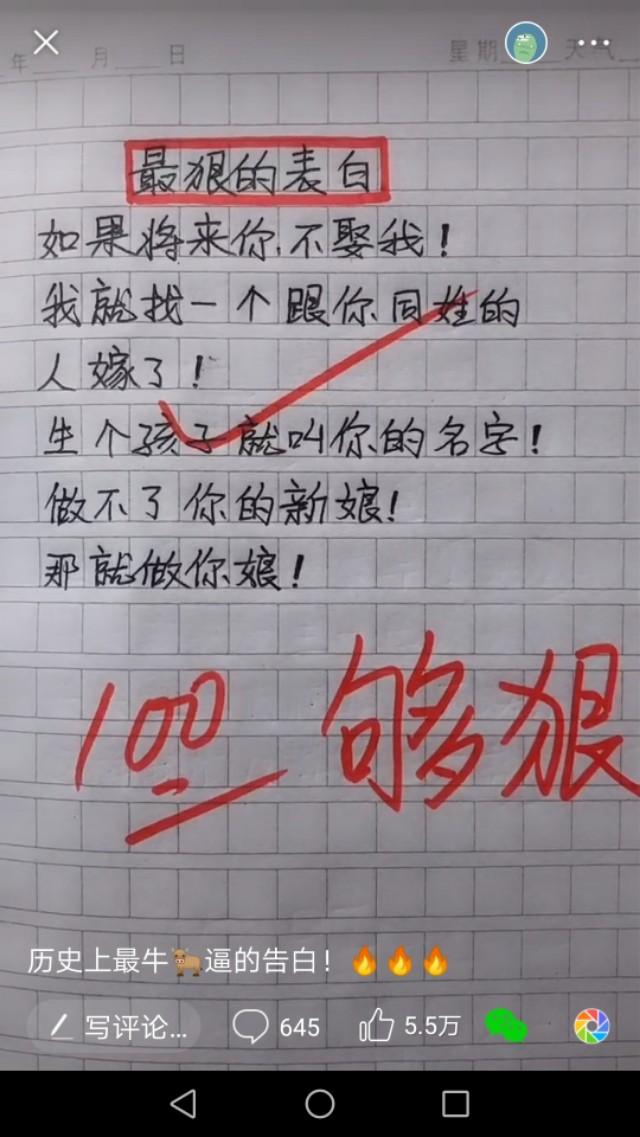 年 月 日 星期 天气
最狠的表白
如果将来你不娶我！
我就找一个跟你同姓的
人嫁了！
生个孩子就叫你的名字！
做不了你的新娘！
那就做你娘！
100 够狠
历史上最牛🐂逼的告白！🔥🔥🔥
写评论... 645 5.5万